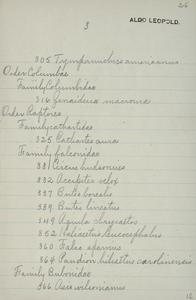 26
ALDO LEOPOLD.
3
305 Tympanuchus americanus
Order Columbae
Family Columbidae
316 Zenaidura macroura
Order Raptores
Family Cathartidae
325 Cathartes aura
Family Falconidae
331 Circus hudsonius
332 Accipiter velox
337 Buteo borealis
339 Buteo lineatus
349 Aquila chrysaetos
352 Haliaeetus leucocephalus
360 Falco
364 Pandion haliaetus carolinensis
Family Bubonidae
366 Asio wilsonianus